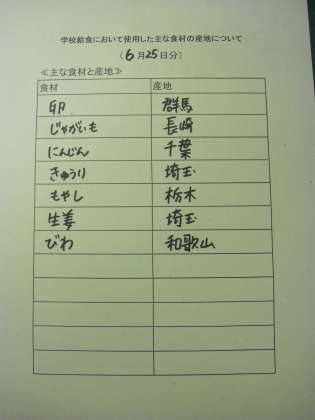 学校給食において使用した主な食材の産地について
（6月25日分）
≪主な食材と産地≫
食材 産地
卵 群馬
じゃがいも 長崎
にんじん 千葉
きゅうり 埼玉
もやし 栃木
生姜 埼玉
びわ 和歌山